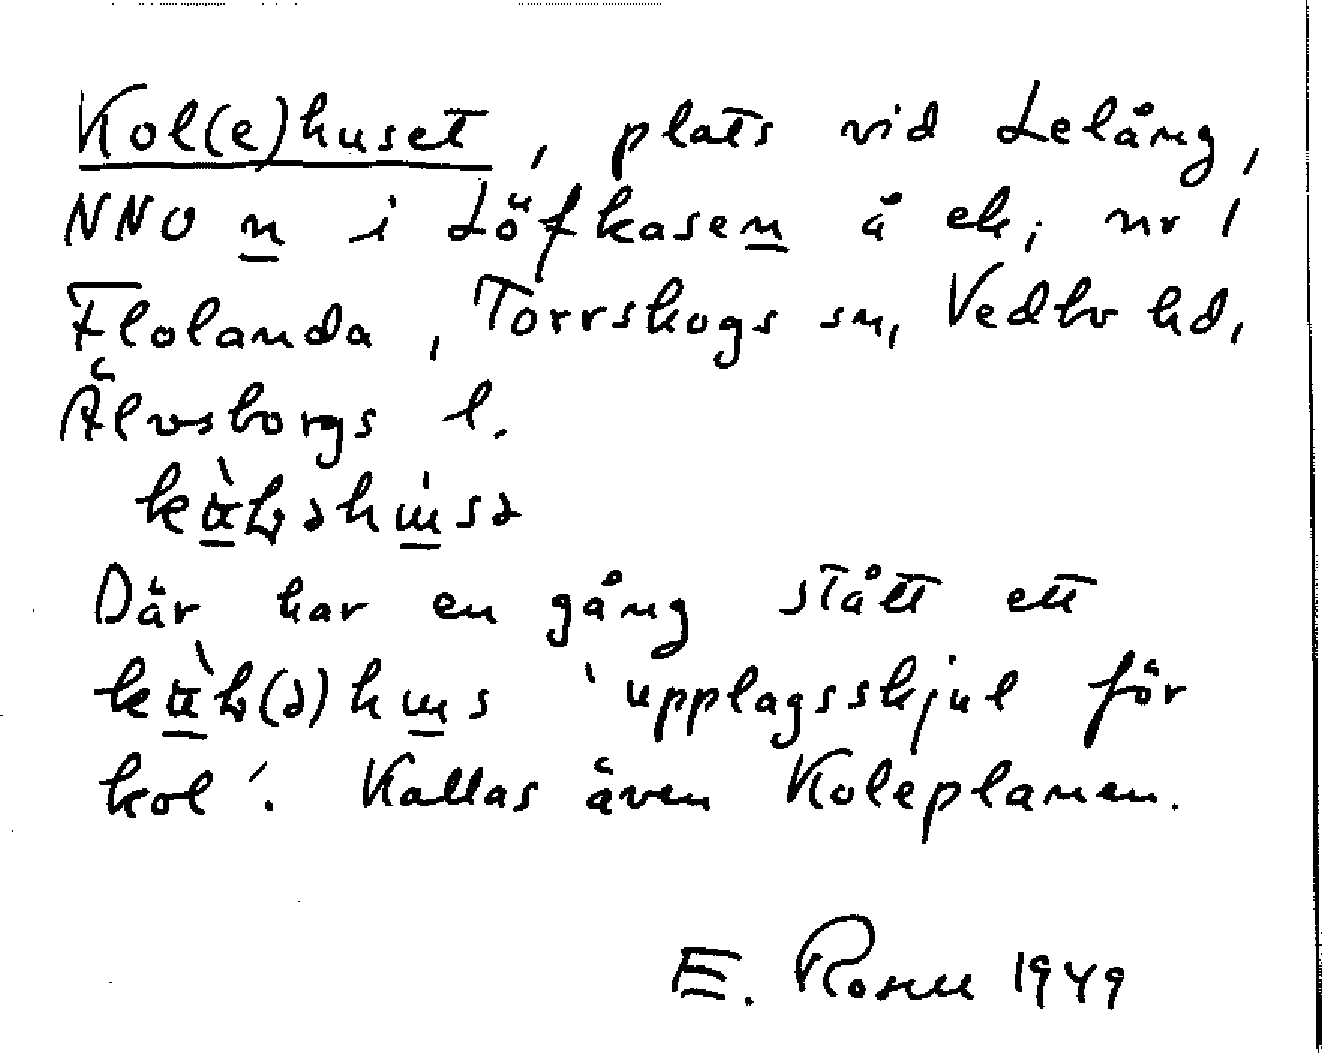 Kol(e)huset, plats vid Lelång,
NNO n i Löfkasen å ek; nr 1
Flolanda, Torrskogs sn, Vedbo hd,
Älvsborgs l.
Där har en gång stått ett
'upplagsskjul för
kol'. Kallas även Koleplanen.
E. Rosell 1949